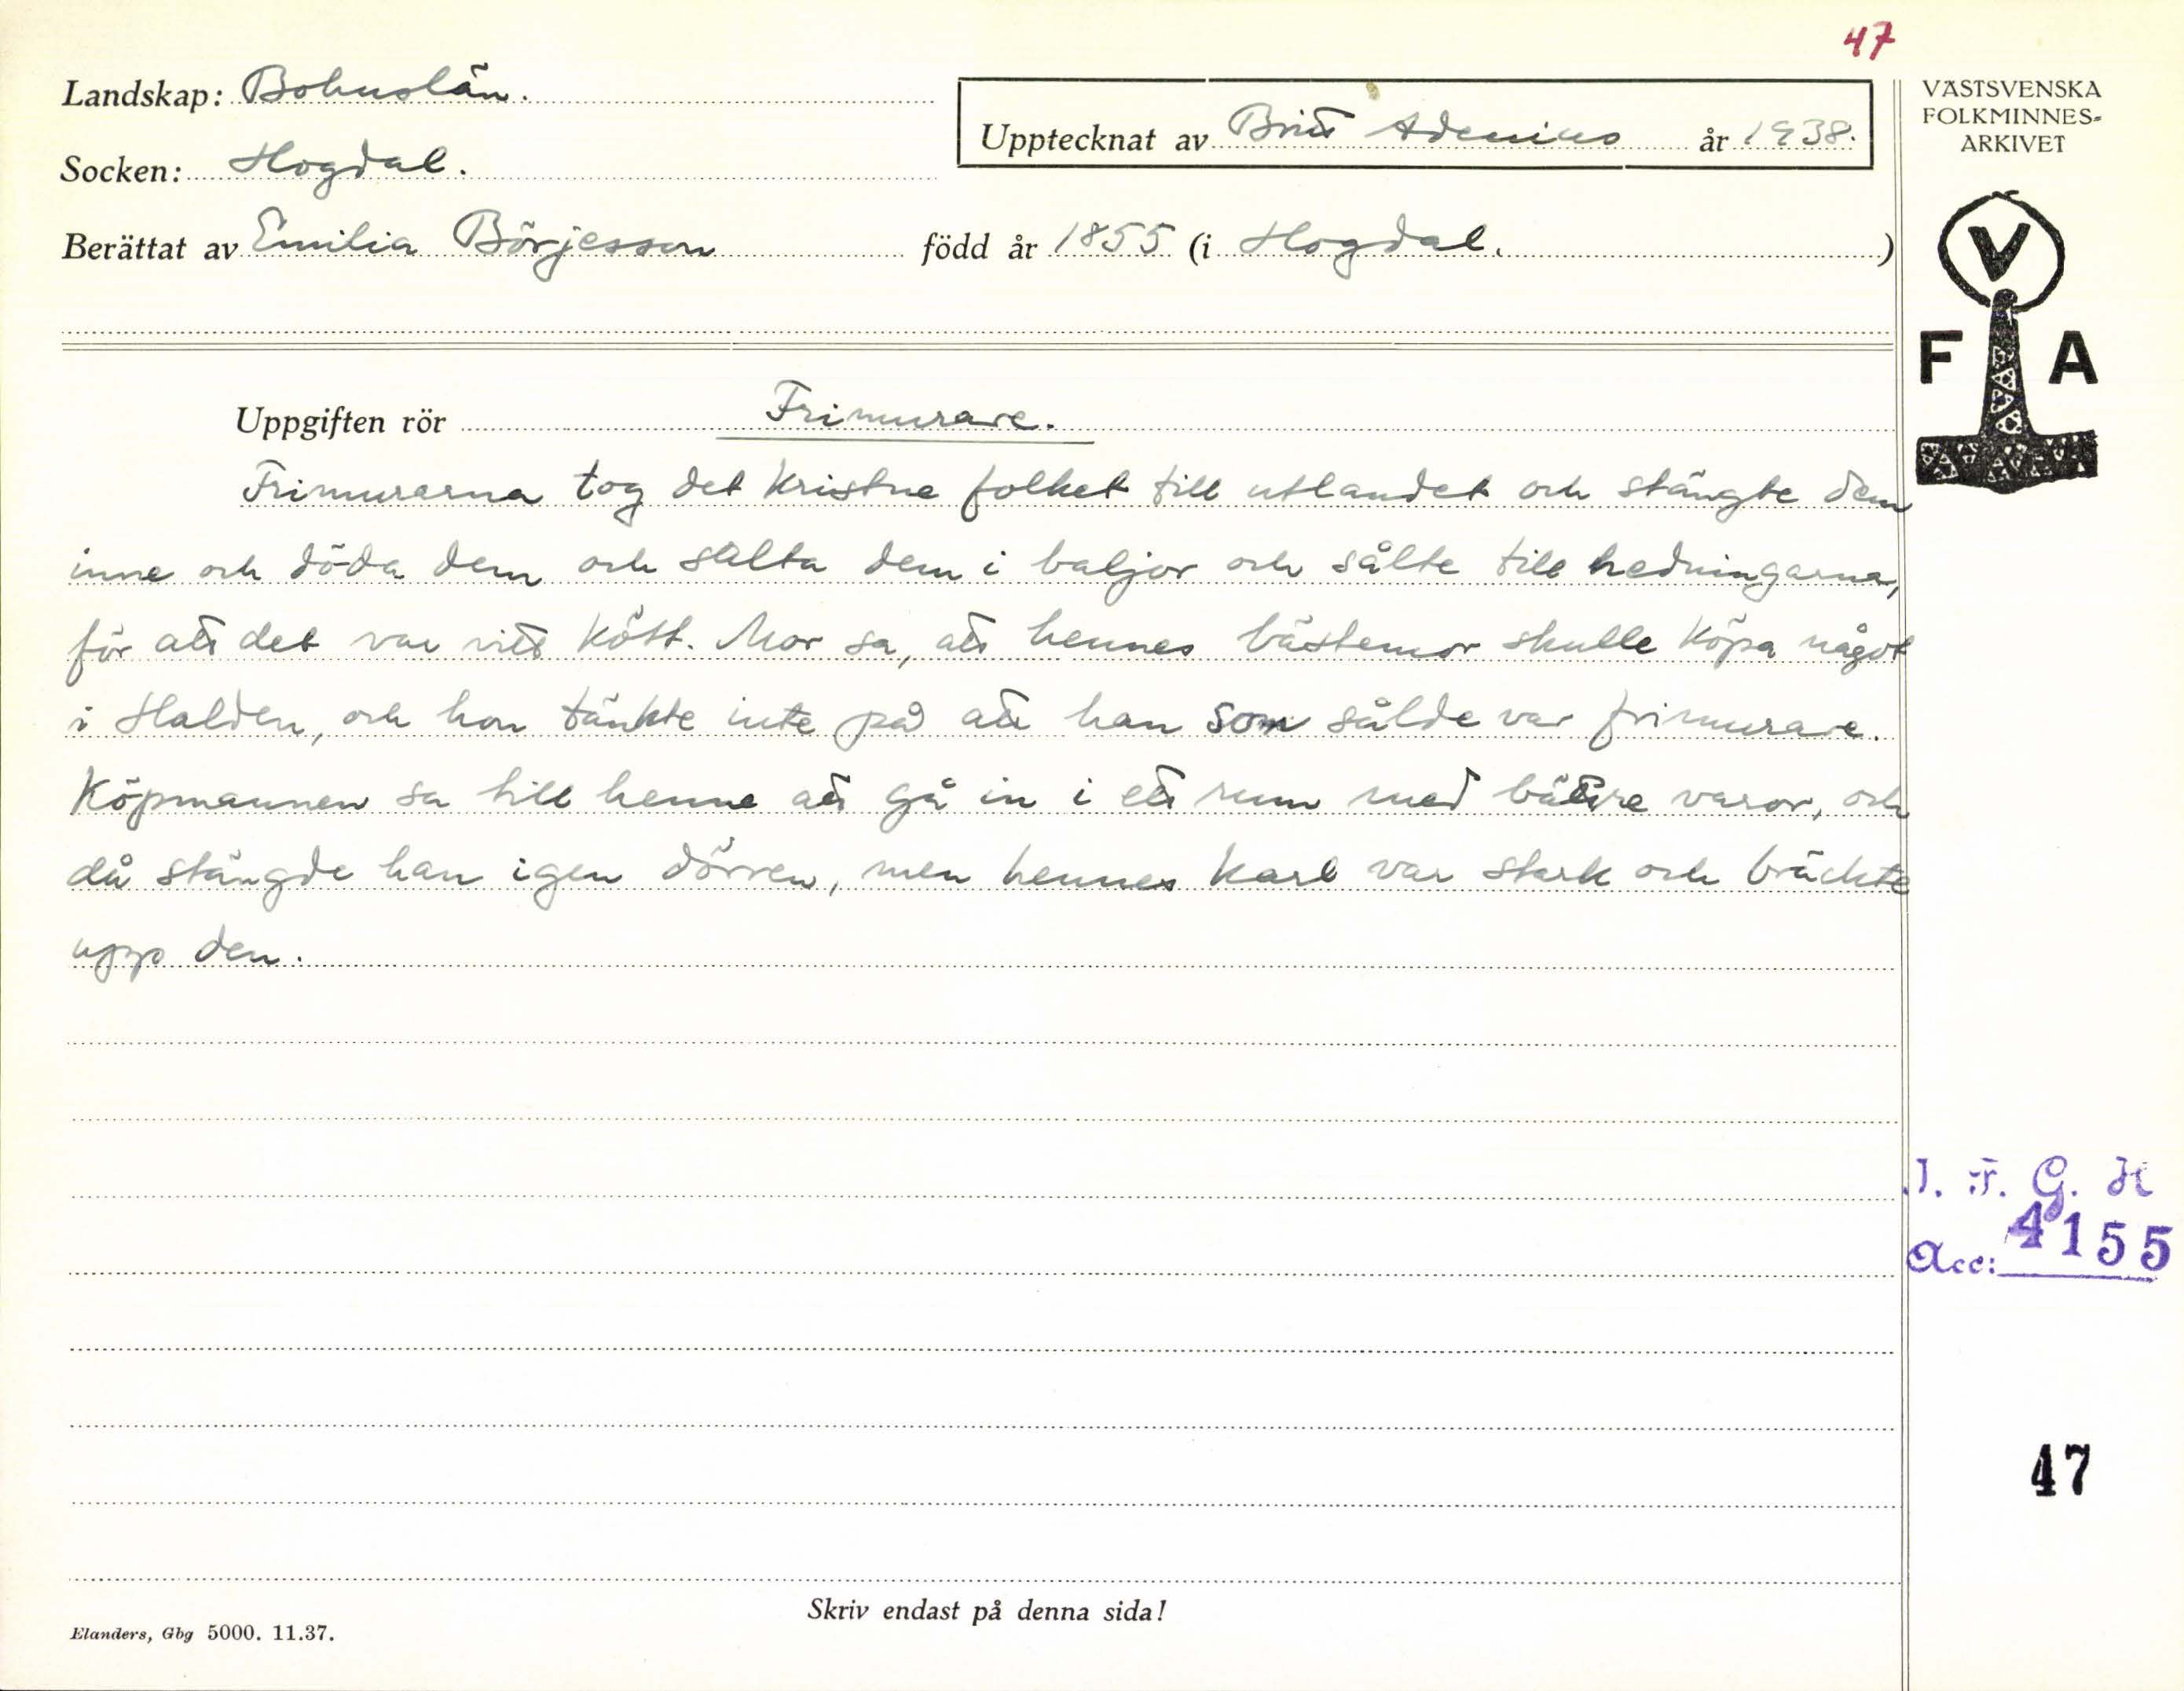 47
Landskap: Bohuslän.
Upptecknat av Britt Adenius år 1938.
VÄSTSVENSKA
FOLKMINNES-
ARKIVET
Socken: Hogdal.
Berättat av Emilia Börjesson född år 1855 (i Hogdal.)
V
F A
Uppgiften rör Frimurare.
Frimurarna tog det kristne folket till utlandet och stängte dem
inne och döda dem och salta dem i baljor och sålte till hedningarna,
för att det var vitt kött. Mor sa, att hennes bästemor skulle köpa något
i Halden, och hon tänkte inte på att han som sålde var frimurare.
Köpmannen sa till henne att gå in i ett rum med bättre varor, och
då stängde han igen dörren, men hennes karl var stark och bräckte
upp den.
I. F. G. H
Acc: 4155
47
Skriv endast på denna sida!
Elanders, Gbg 5000. 11.37.